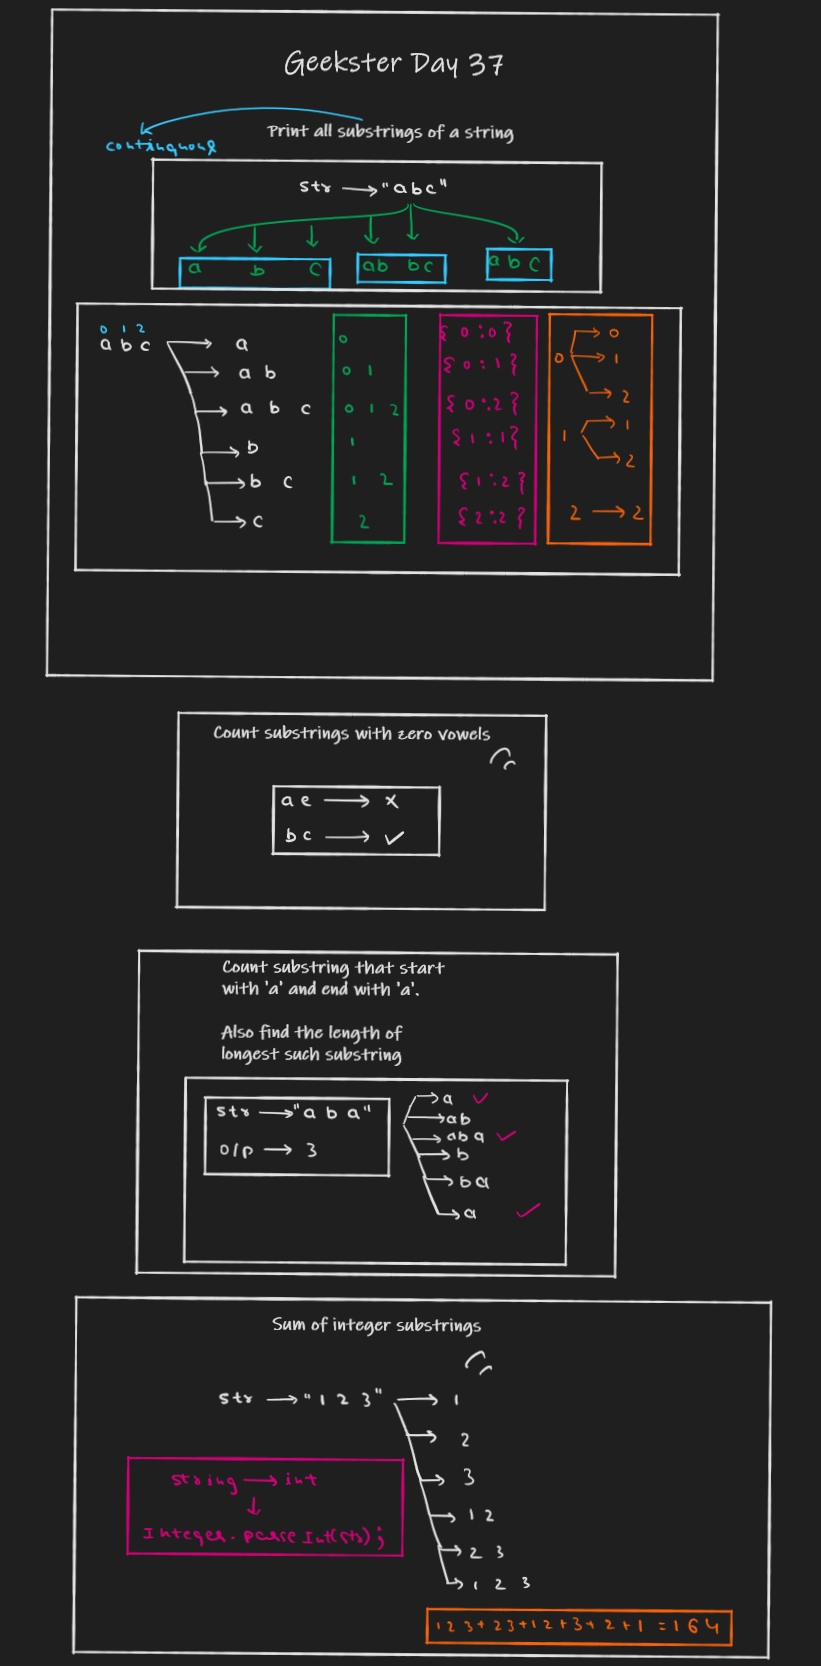 Geekster Day 37
Print all substrings of a string
continquous
str → "abc"
a b c ab bc abc
0 1 2
a b c → a
a b
a b c
b
b c
c
0
0 1
0 1 2
1
1 2
2
{0:0}
{0:1}
{0:2}
{1:1}
{1:2}
{2:2}
0 → 0
→ 1
→ 2
1 → 1
→ 2
2 → 2
Count substrings with zero vowels
ae → x
bc → ✓
Count substring that start
with 'a' and end with 'a'.
Also find the length of
longest such substring
str → "a b a"
o/p → 3
→ a ✓
→ ab
→ aba ✓
→ b
→ ba
→ a ✓
Sum of integer substrings
str → "1 2 3" → 1
→ 2
→ 3
→ 1 2
→ 2 3
→ 1 2 3
string → int
↓
Integer.parseInt(str);
123+23+12+3+2+1=164